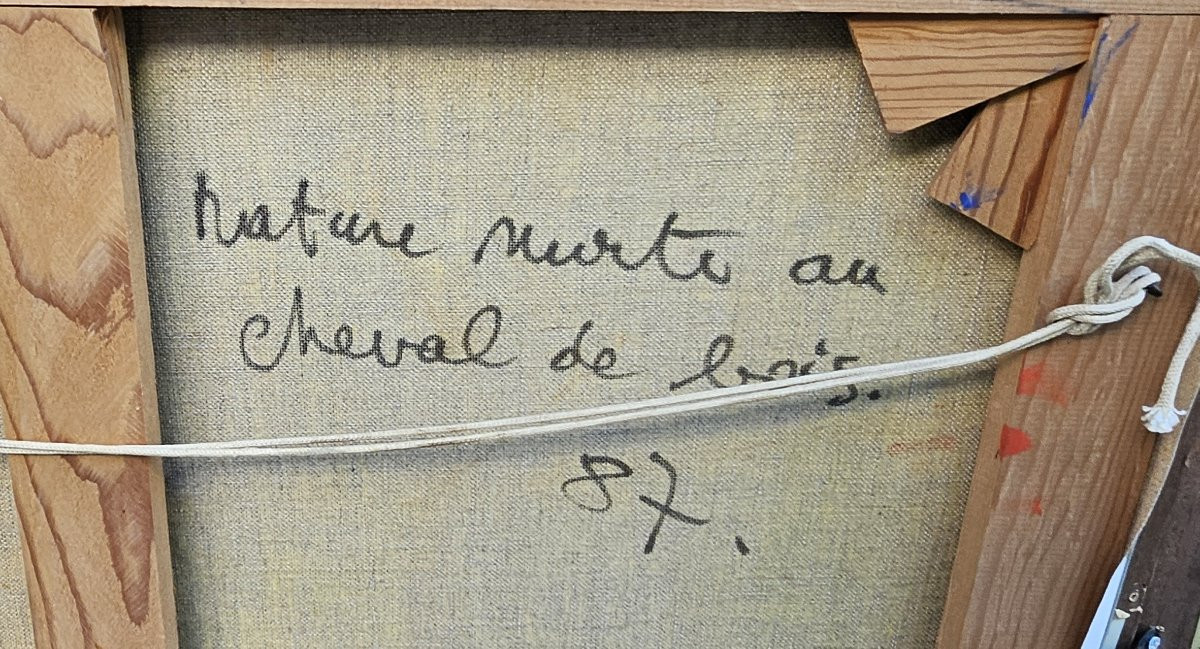 Nature Morte au
cheval de bois.
87.